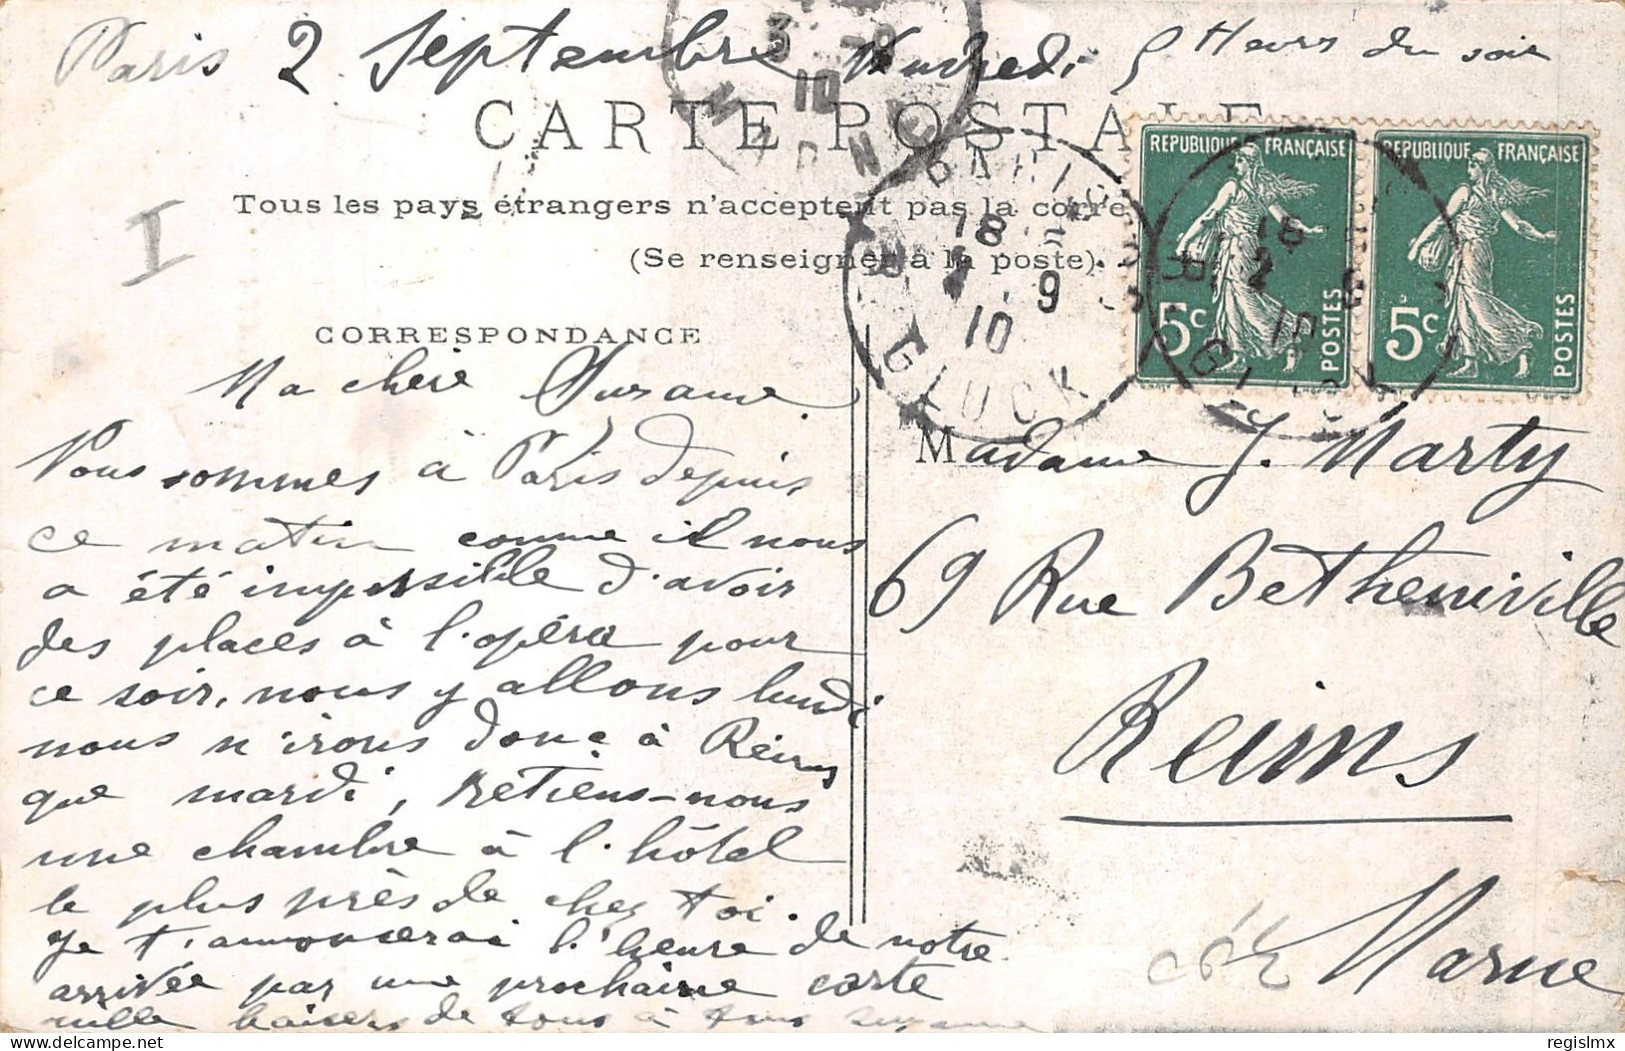 Paris 2 Septembre Vendredi 5 Heurs du soir
3 -9
10
MARNE
CARTE POSTALE
Tous les pays étrangers n'acceptent pas la corre
(Se renseigner à la poste).
I
CORRESPONDANCE
REPUBLIQUE FRANÇAISE
5c
POSTES
REPUBLIQUE FRANÇAISE
5c
POSTES
PARIS
18
2 9
10
R. GLUCK
18
2 9
10
Ma chère Suzanne.
Nous sommes à Paris depuis
ce matin comme il nous
a été impossible d'avoir
des places à l'opéra pour
ce soir, nous y allons lundi
nous n'irons donc à Reims
que mardi, retiens-nous
une chambre à l'hôtel
le plus près de chez toi.
Je t'annoncerai l'heure de notre
arrivée par une prochaine carte
mille baisers de tous à tous Suzanne
Madame J. Marty
69 Rue Betheniville
Reims
Marne
regislmx